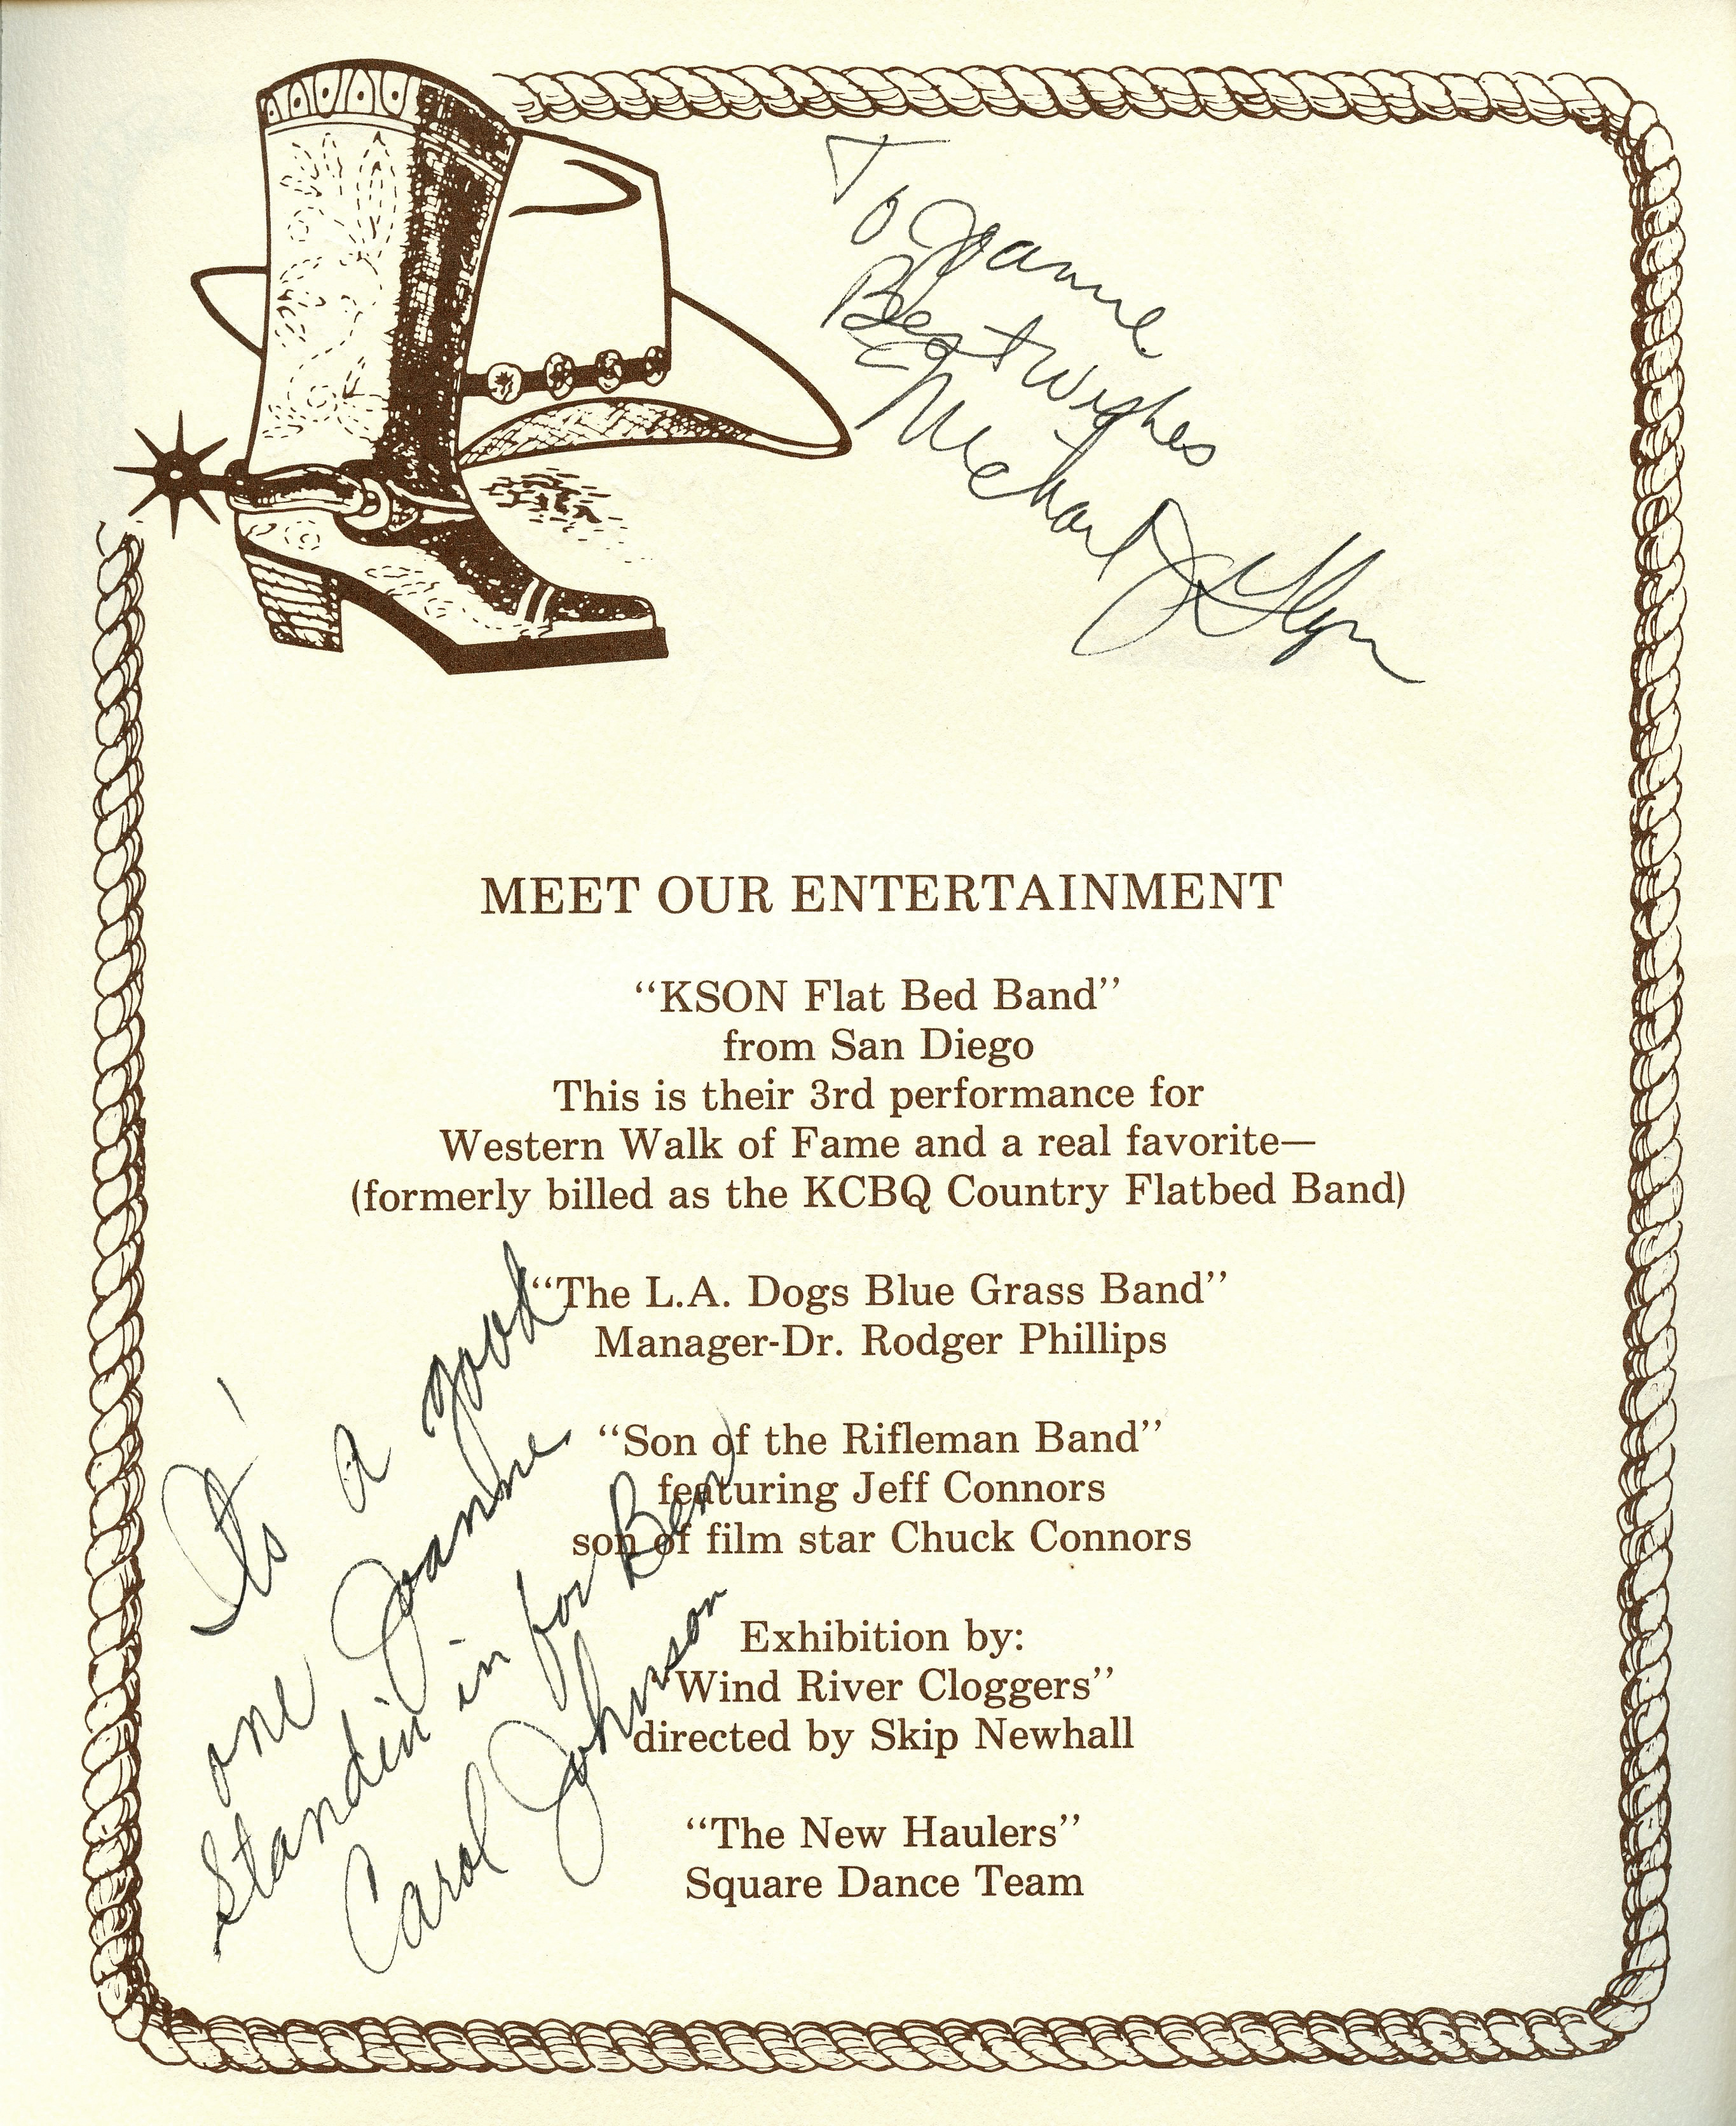 To Joanne
Best Wishes
Michael J
MEET OUR ENTERTAINMENT
“KSON Flat Bed Band”
from San Diego
This is their 3rd performance for
Western Walk of Fame and a real favorite—
(formerly billed as the KCBQ Country Flatbed Band)
“The L.A. Dogs Blue Grass Band”
Manager-Dr. Rodger Phillips
“Son of the Rifleman Band”
featuring Jeff Connors
son of film star Chuck Connors
Exhibition by:
“Wind River Cloggers”
directed by Skip Newhall
“The New Haulers”
Square Dance Team
It's a good
one Joanne
Standin in for Ben
Carol Johnson